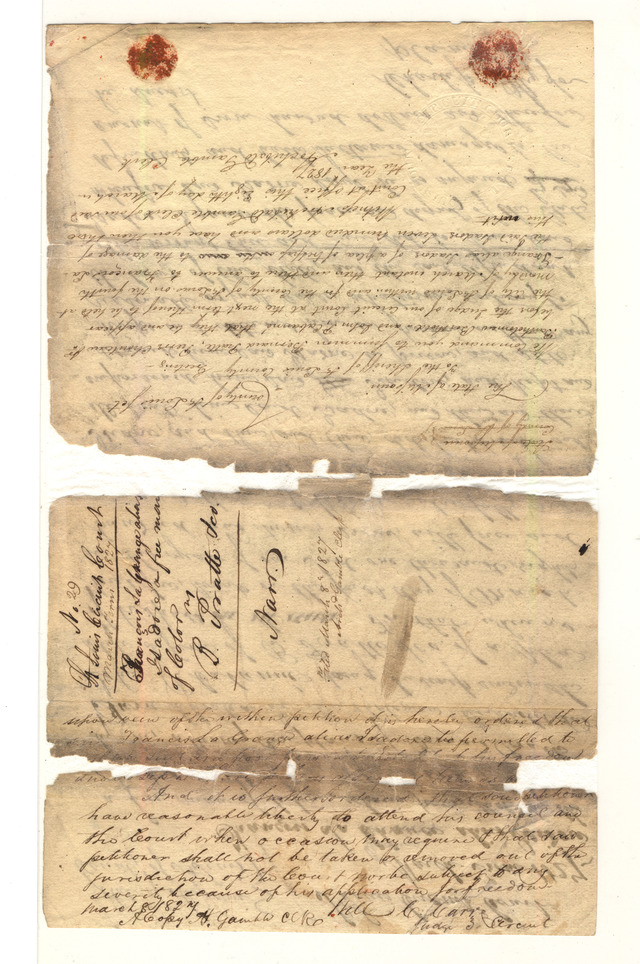 State of Missouri
County of St Louis
County of St Louis Sct
The State of Missouri
To the Sheriff of St Louis County Greeting
We Command you to summon Bernard Pratte, Pierre Chouteau Jr
Bartholomew Berthold and John P. Cabanné that they be and appear
before the Judge of our Circuit Court at the next term thereof to be held at
the City of St Louis within and for the County of St Louis on the fourth
Monday of March instant then and there to answer to François La
Grange alias Isadore of a plea of trespass to the damage of
the said Isadore seven hundred dollars and have you then there
this writ
Witness Archibald Gamble Clerk of our said
Court at office this Eighth day of March in
the year 1827
Archibald Gamble Clerk
No. 29
St Louis Circuit Court
March Term 1827
François La Grange alias
Isadore a free man
of Color
vs
B. Pratte &co.
Narr.
Filed March 8th 1827
Archd Gamble Clerk
upon view of the within petition it is hereby ordered that
Francis La Grange alias Isadore be permitted to
And it is further ordered that petitioner
have reasonable liberty to attend his council and
the Court when occasion may require & that said
petitioner shall not be taken or removed out of the
jurisdiction of the Court nor be subject to any
severity because of his application for freedom
March 8 1827
Will C. Carr
A Copy A. Gamble Clk
Judge 3 Circuit